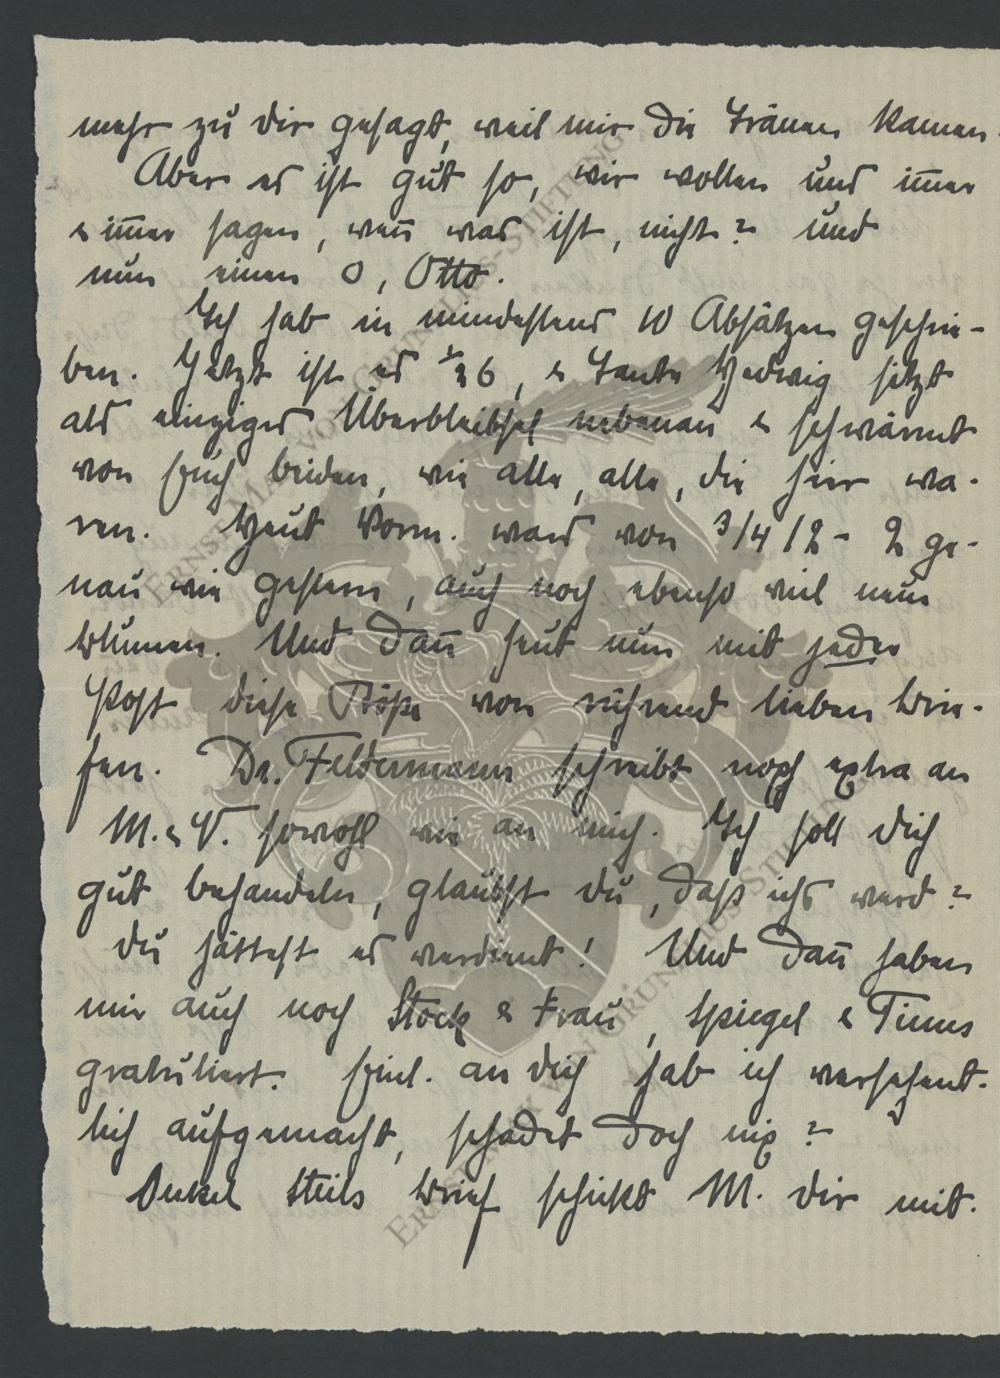 mehr zu dir gesagt, weil mir die Tränen kamen.
Aber es ist gut so, wir wollen uns im̄er
& im̄er sagen, wen̄ was ist, nicht? und
nun einen O, Otto.
Ich hab in mindestens 10 Absätzen geschrie-
ben. Jetzt ist es ½6, & Tante Hedwig sitzt
als einziges Überbleibsel nebenan & schwärmt
von Euch beiden, wie alle, alle, die hier wa-
ren. Heut Vorm. wars von 3/4 12 - 2 ge-
nau wie gestern, auch noch ebenso viel neue
Blumen. Und dan̄ heut nun mit jeder
Post diese Stöße von rührend lieben Brie-
fen. Dr. Feldermann schreibt noch extra an
M. & V. sowohl wie an mich. Ich soll dich
gut behandeln, glaubst du, daß ichs werd?
du hättest es verdient! Und dan̄ haben
mir auch noch Stock & Frau, Spiegel & Timms
gratuliert. Einl. an dich hab ich versehent-
lich aufgemacht, schadet doch nix?
Onkel Brief schickt M. dir mit.
ERNST-MAX-VON-GRUNELIUS-STIFTUNG
ERNST MAX VON GRUNELIUS-STIFTUNG